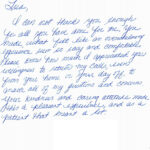 Lisa,
I can not thank you enough
for all you have done for me. You
made what felt like an overwhelming
experience feel so easy and comfortable.
know how much I appreciated your
willingness to return my calls, even
from your home on your day off to
answer all of my questions and concerns
Your kindness and caring attitude made
this a pleasant experience, and as a
patient that meant a lot.